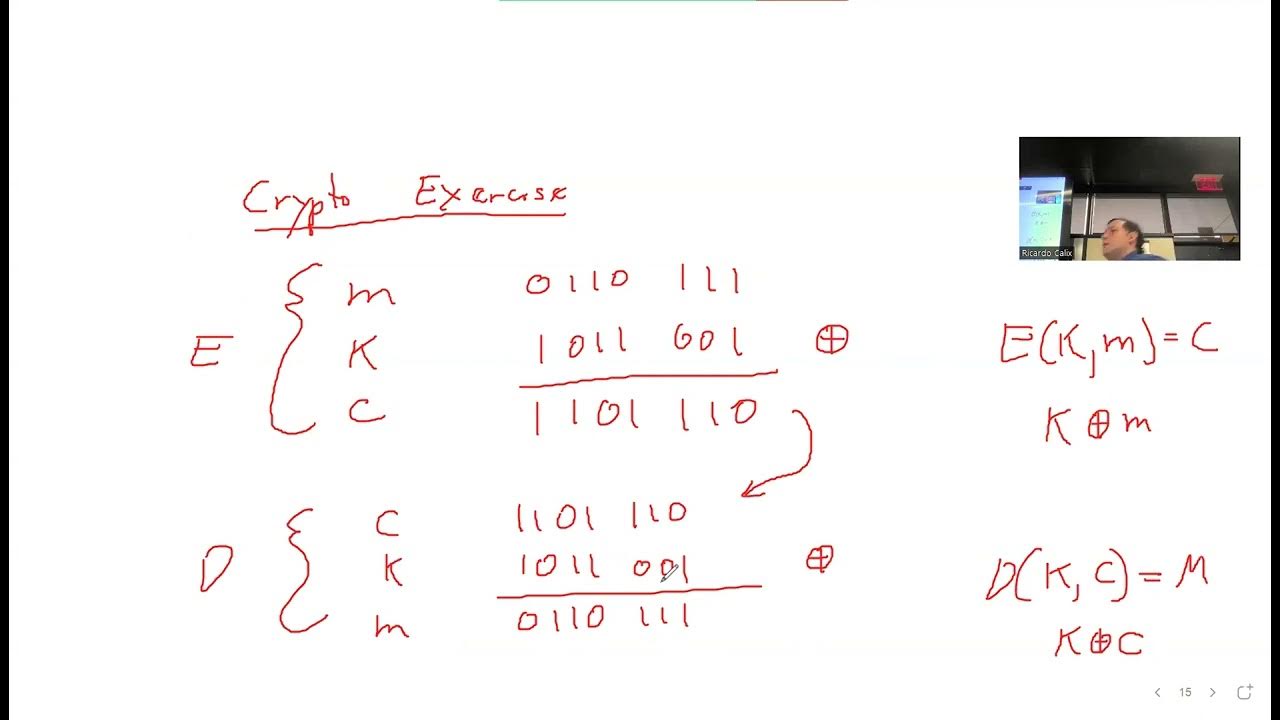 Crypto Exercise
E { m 0110 111
K 1011 001 ⊕
C 1101 110
E(K,m) = C
K ⊕ m
D { C 1101 110
K 1011 001 ⊕
m 0110 111
D(K,C) = M
K⊕C
Ricardo Calix
15